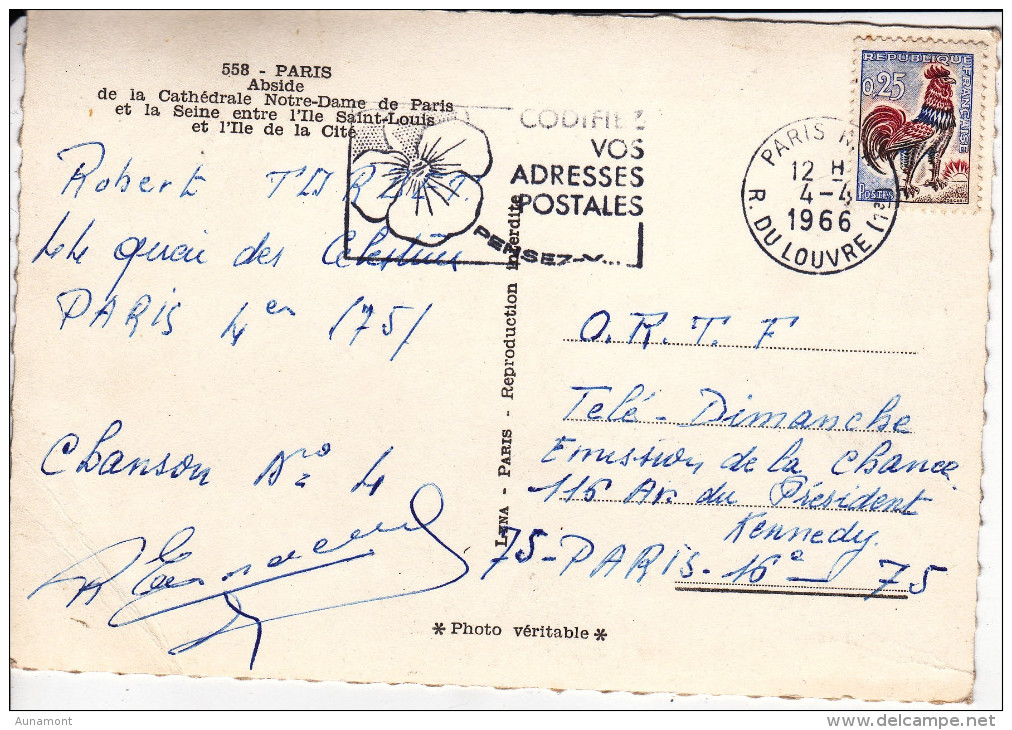 558 - PARIS
Abside
de la Cathédrale Notre-Dame de Paris
et la Seine entre l'Ile Saint-Louis
et l'Ile de la Cité
CODIFIEZ
VOS
ADRESSES
POSTALES
PENSEZ-Y...
REPUBLIQUE FRANÇAISE
0,25
POSTES
PARIS
12 H
4-4
1966
R. DU LOUVRE (1er)
Robert
44 quai des Célestins
PARIS 4e (75)
Chanson No 4
LENA - PARIS - Reproduction interdite
O.R.T.F
Télé-Dimanche
Emission de la Chance
116 Av. du Président
Kennedy.
75-PARIS-16e 75
* Photo véritable *
Aunamont
delcampe.net